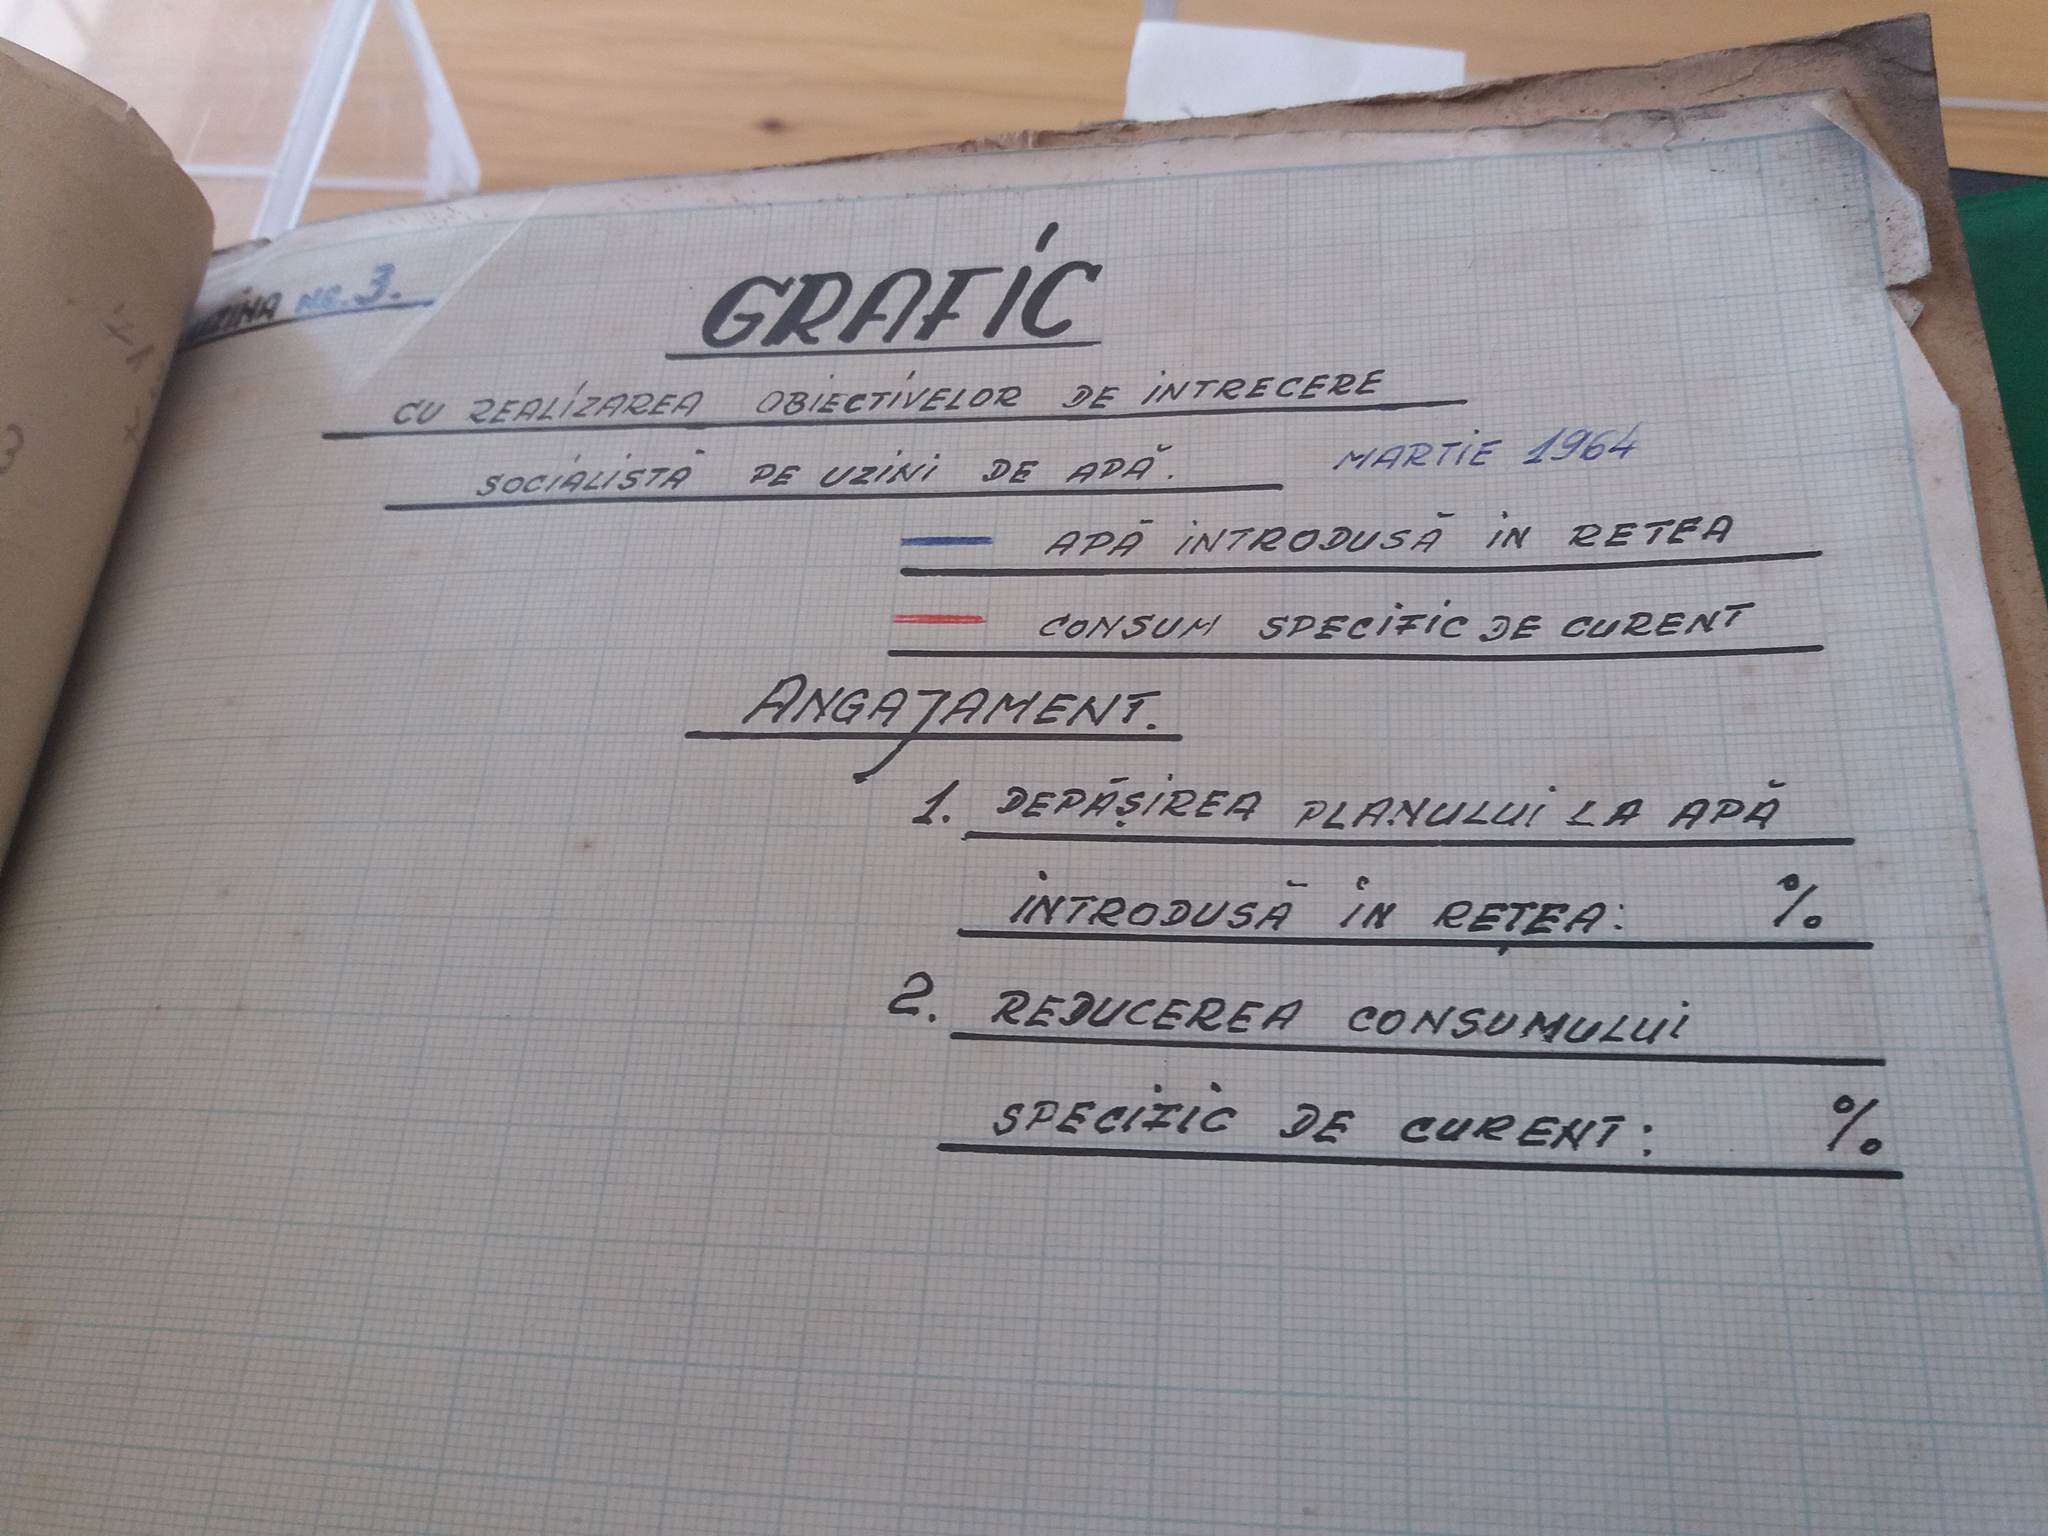 UZINA NR. 3.
GRAFIC
CU REALIZAREA OBIECTIVELOR DE INTRECERE
SOCIALISTĂ PE UZINI DE APĂ. MARTIE 1964
APĂ INTRODUSĂ IN RETEA
CONSUM SPECIFIC DE CURENT
ANGAJAMENT.
1. DEPĂȘIREA PLANULUI LA APĂ
INTRODUSĂ ÎN REȚEA: %
2. REDUCEREA CONSUMULUI
SPECIFIC DE CURENT: %